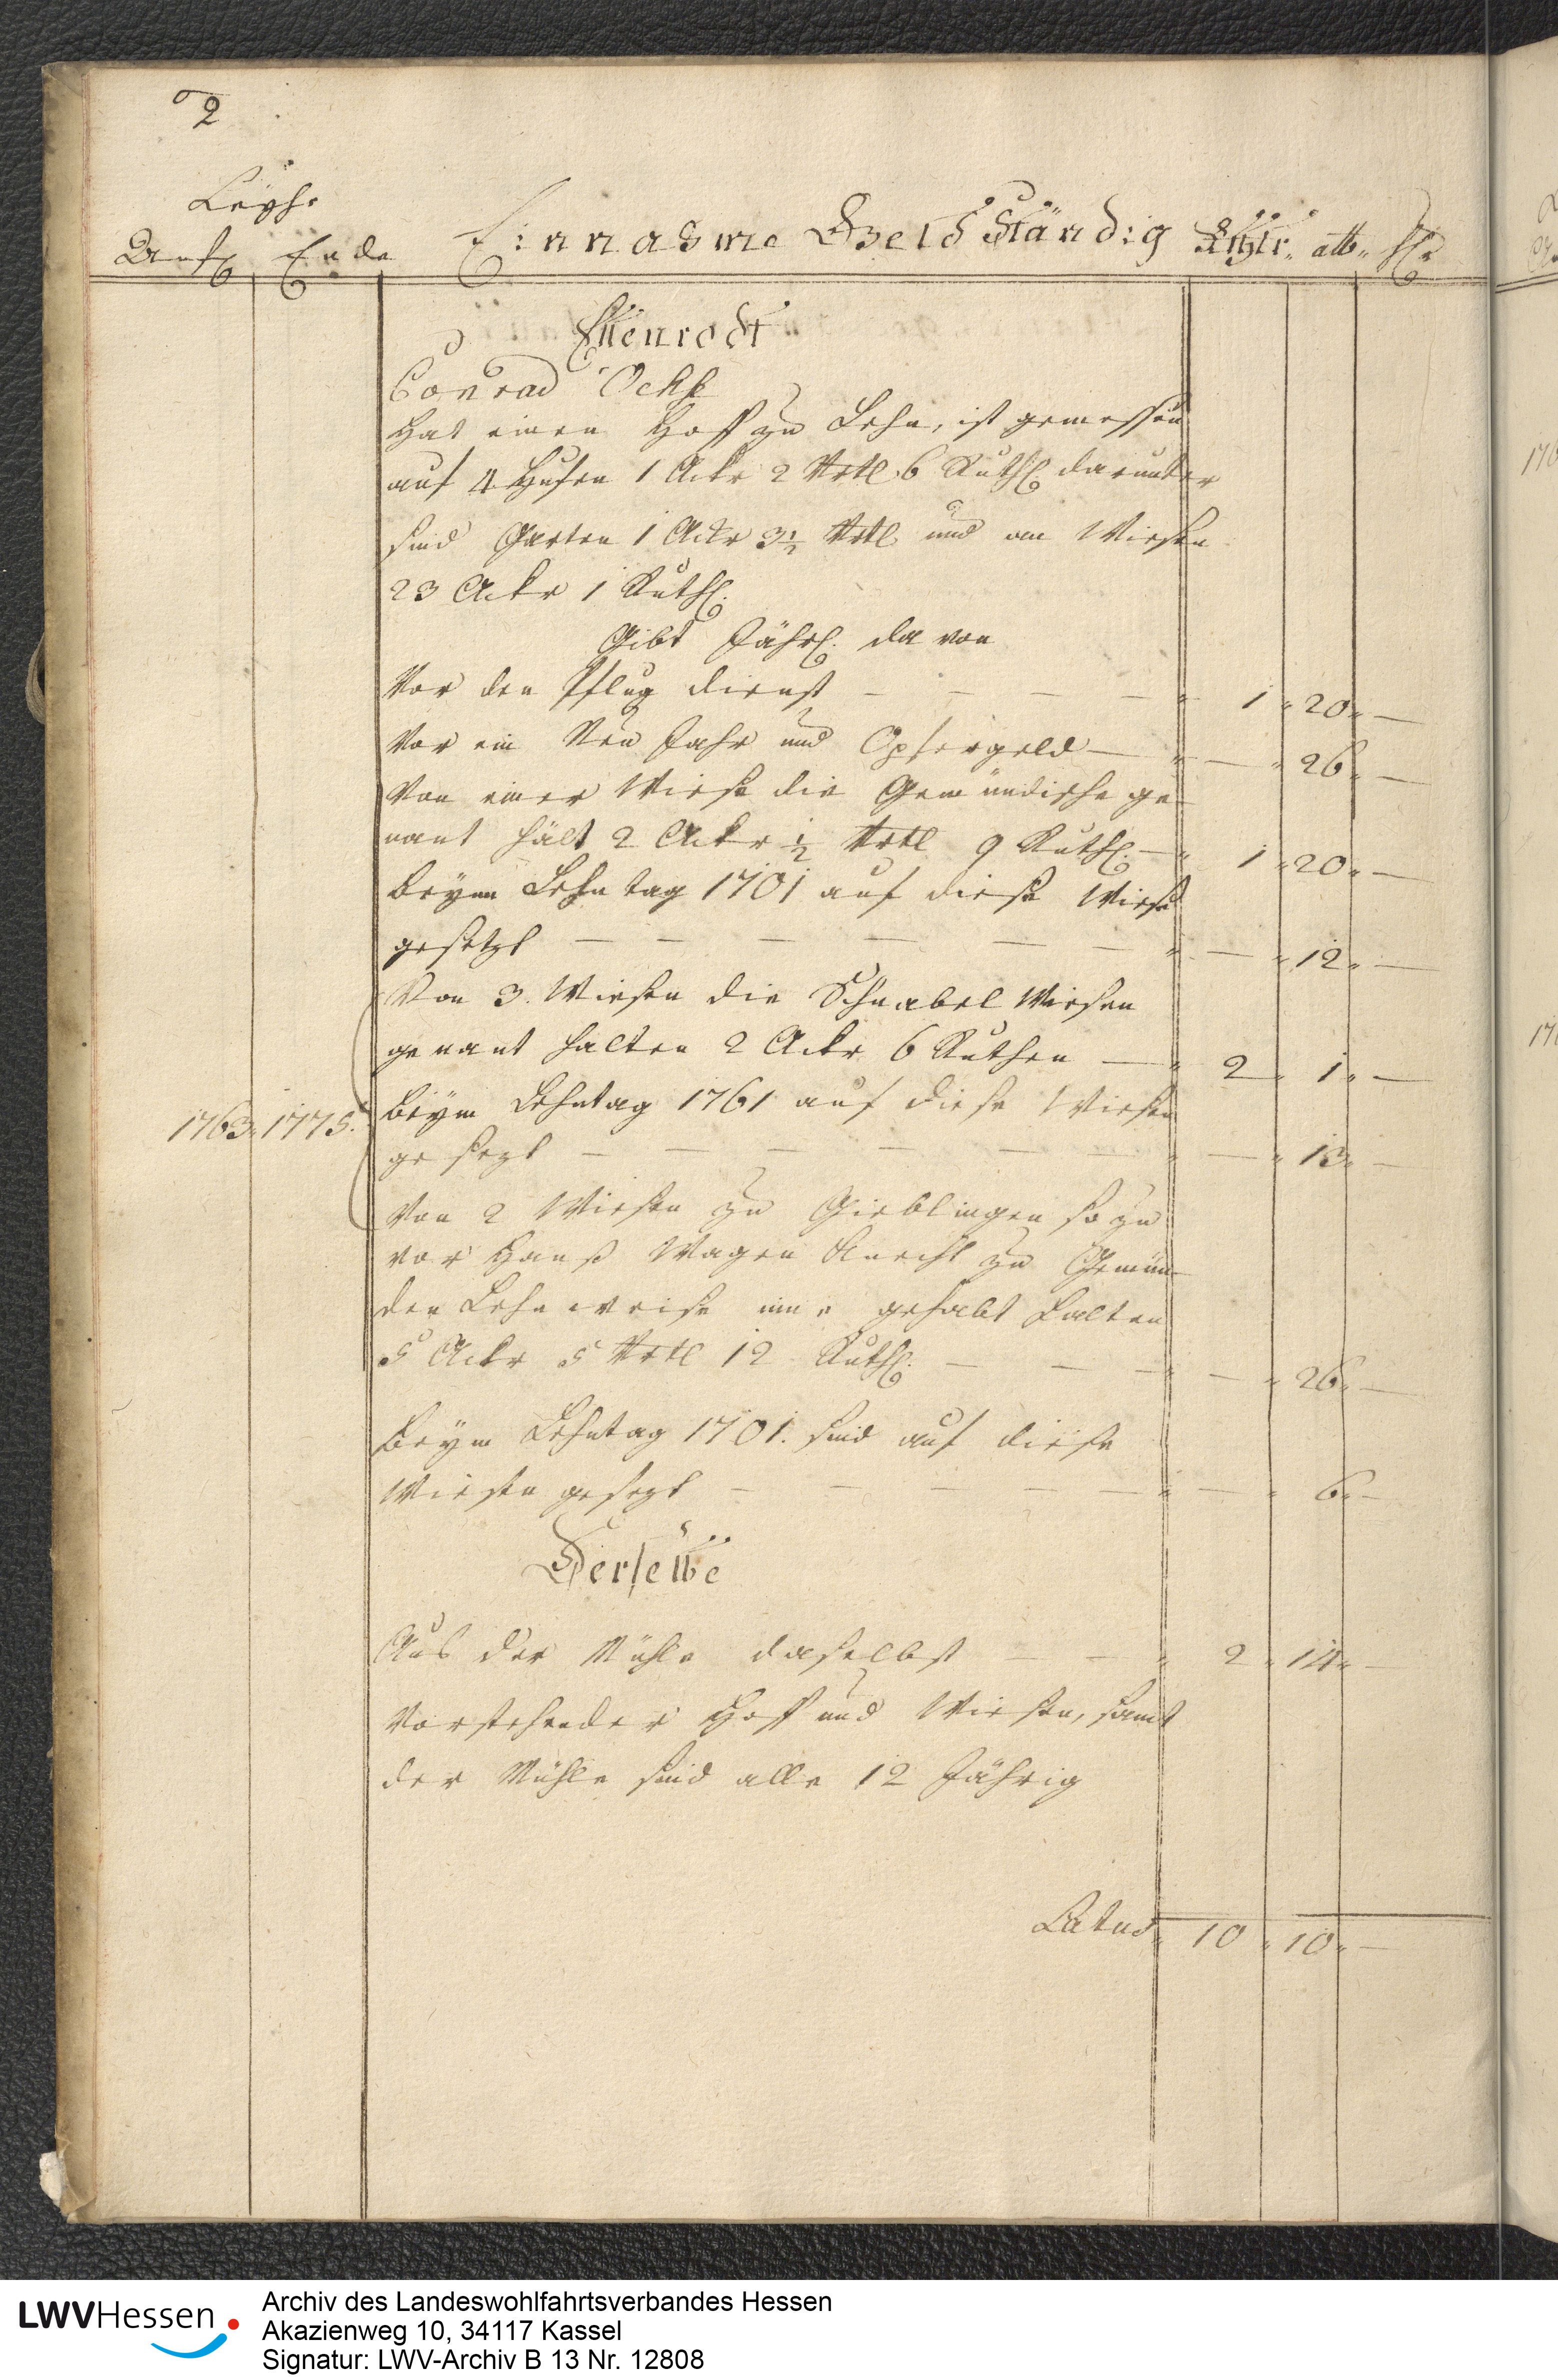 2
Leyhe
Anf. Ende Einnahme Geld Ständig Rthlr. alb. hl.
Ellenrodt
Conrad Ochse
Hat einen Hoff zu Lehn, ist gemessen
auf 4 Hufen 1 Ackr 2 Vrtl 6 Ruth. darunter
sind Garten 1 Ackr 3½ Vrtl und an Wiesen
23 Ackr 1 Ruth.
Gibt Jährl. davon
Vor den Pflug dienst — — — — 1 " 20 " —
Vor ein Neu Jahr und Opfergeld — " — " 26 " —
Von einer Wiese die Gemündische ge-
nant hält 2 Ackr ½ Vrtl 9 Ruth. — " 1 " 20 " —
Beym Lehntag 1701 auf diese Wiese
gesetzt — — — — — — " — " 12 " —
Von 3. Wiesen die Schnabel Wiesen
genant halten 2 Ackr 6 Ruthen — " 2 " 1 " —
1763. 1775. Beym Lehntag 1761 auf diese Wiesen
gesezt — — — — — — " — " 13 " —
Von 2 Wiesen zu Gieblingen so zu
vor Hanß Wagen Knecht zu Gemün-
den Lehnweise inne gehabt halten
5 Ackr 5 Vrtl 12 Ruth. — — — " — " 26 " —
Beym Lehntag 1701. sind auf diese
Wiesen gesezt — — — — — " — " 6 " —
Derselbe
Aus der Mühle daselbst — — " 2 " 14 " —
Vorstehender Hoff und Wiesen, samt
der Mühle sind alle 12 Jährig
Latus " 10 " 10 " —
LWVHessen
Archiv des Landeswohlfahrtsverbandes Hessen
Akazienweg 10, 34117 Kassel
Signatur: LWV-Archiv B 13 Nr. 12808